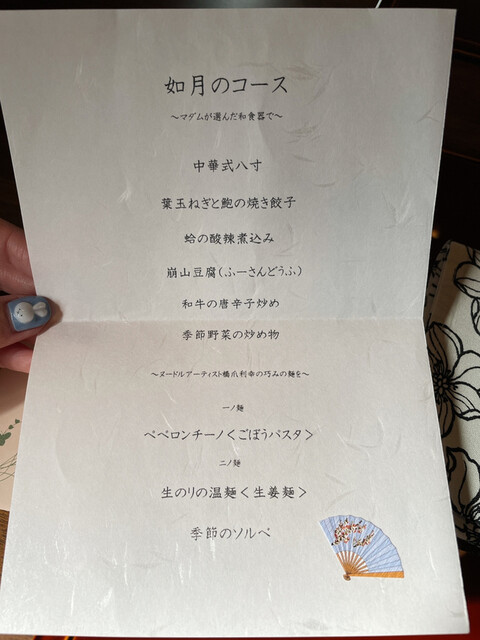 如月のコース
～マダムが選んだ和食器で～
中華式八寸
葉玉ねぎと鮑の焼き餃子
蛤の酸辣煮込み
崩山豆腐(ふーさんどうふ)
和牛の唐辛子炒め
季節野菜の炒め物
～ヌードルアーティスト橋爪利幸の巧みの麺を～
一ノ麺
ペペロンチーノ<ごぼうパスタ>
二ノ麺
生のりの温麺<生姜麺>
季節のソルベ